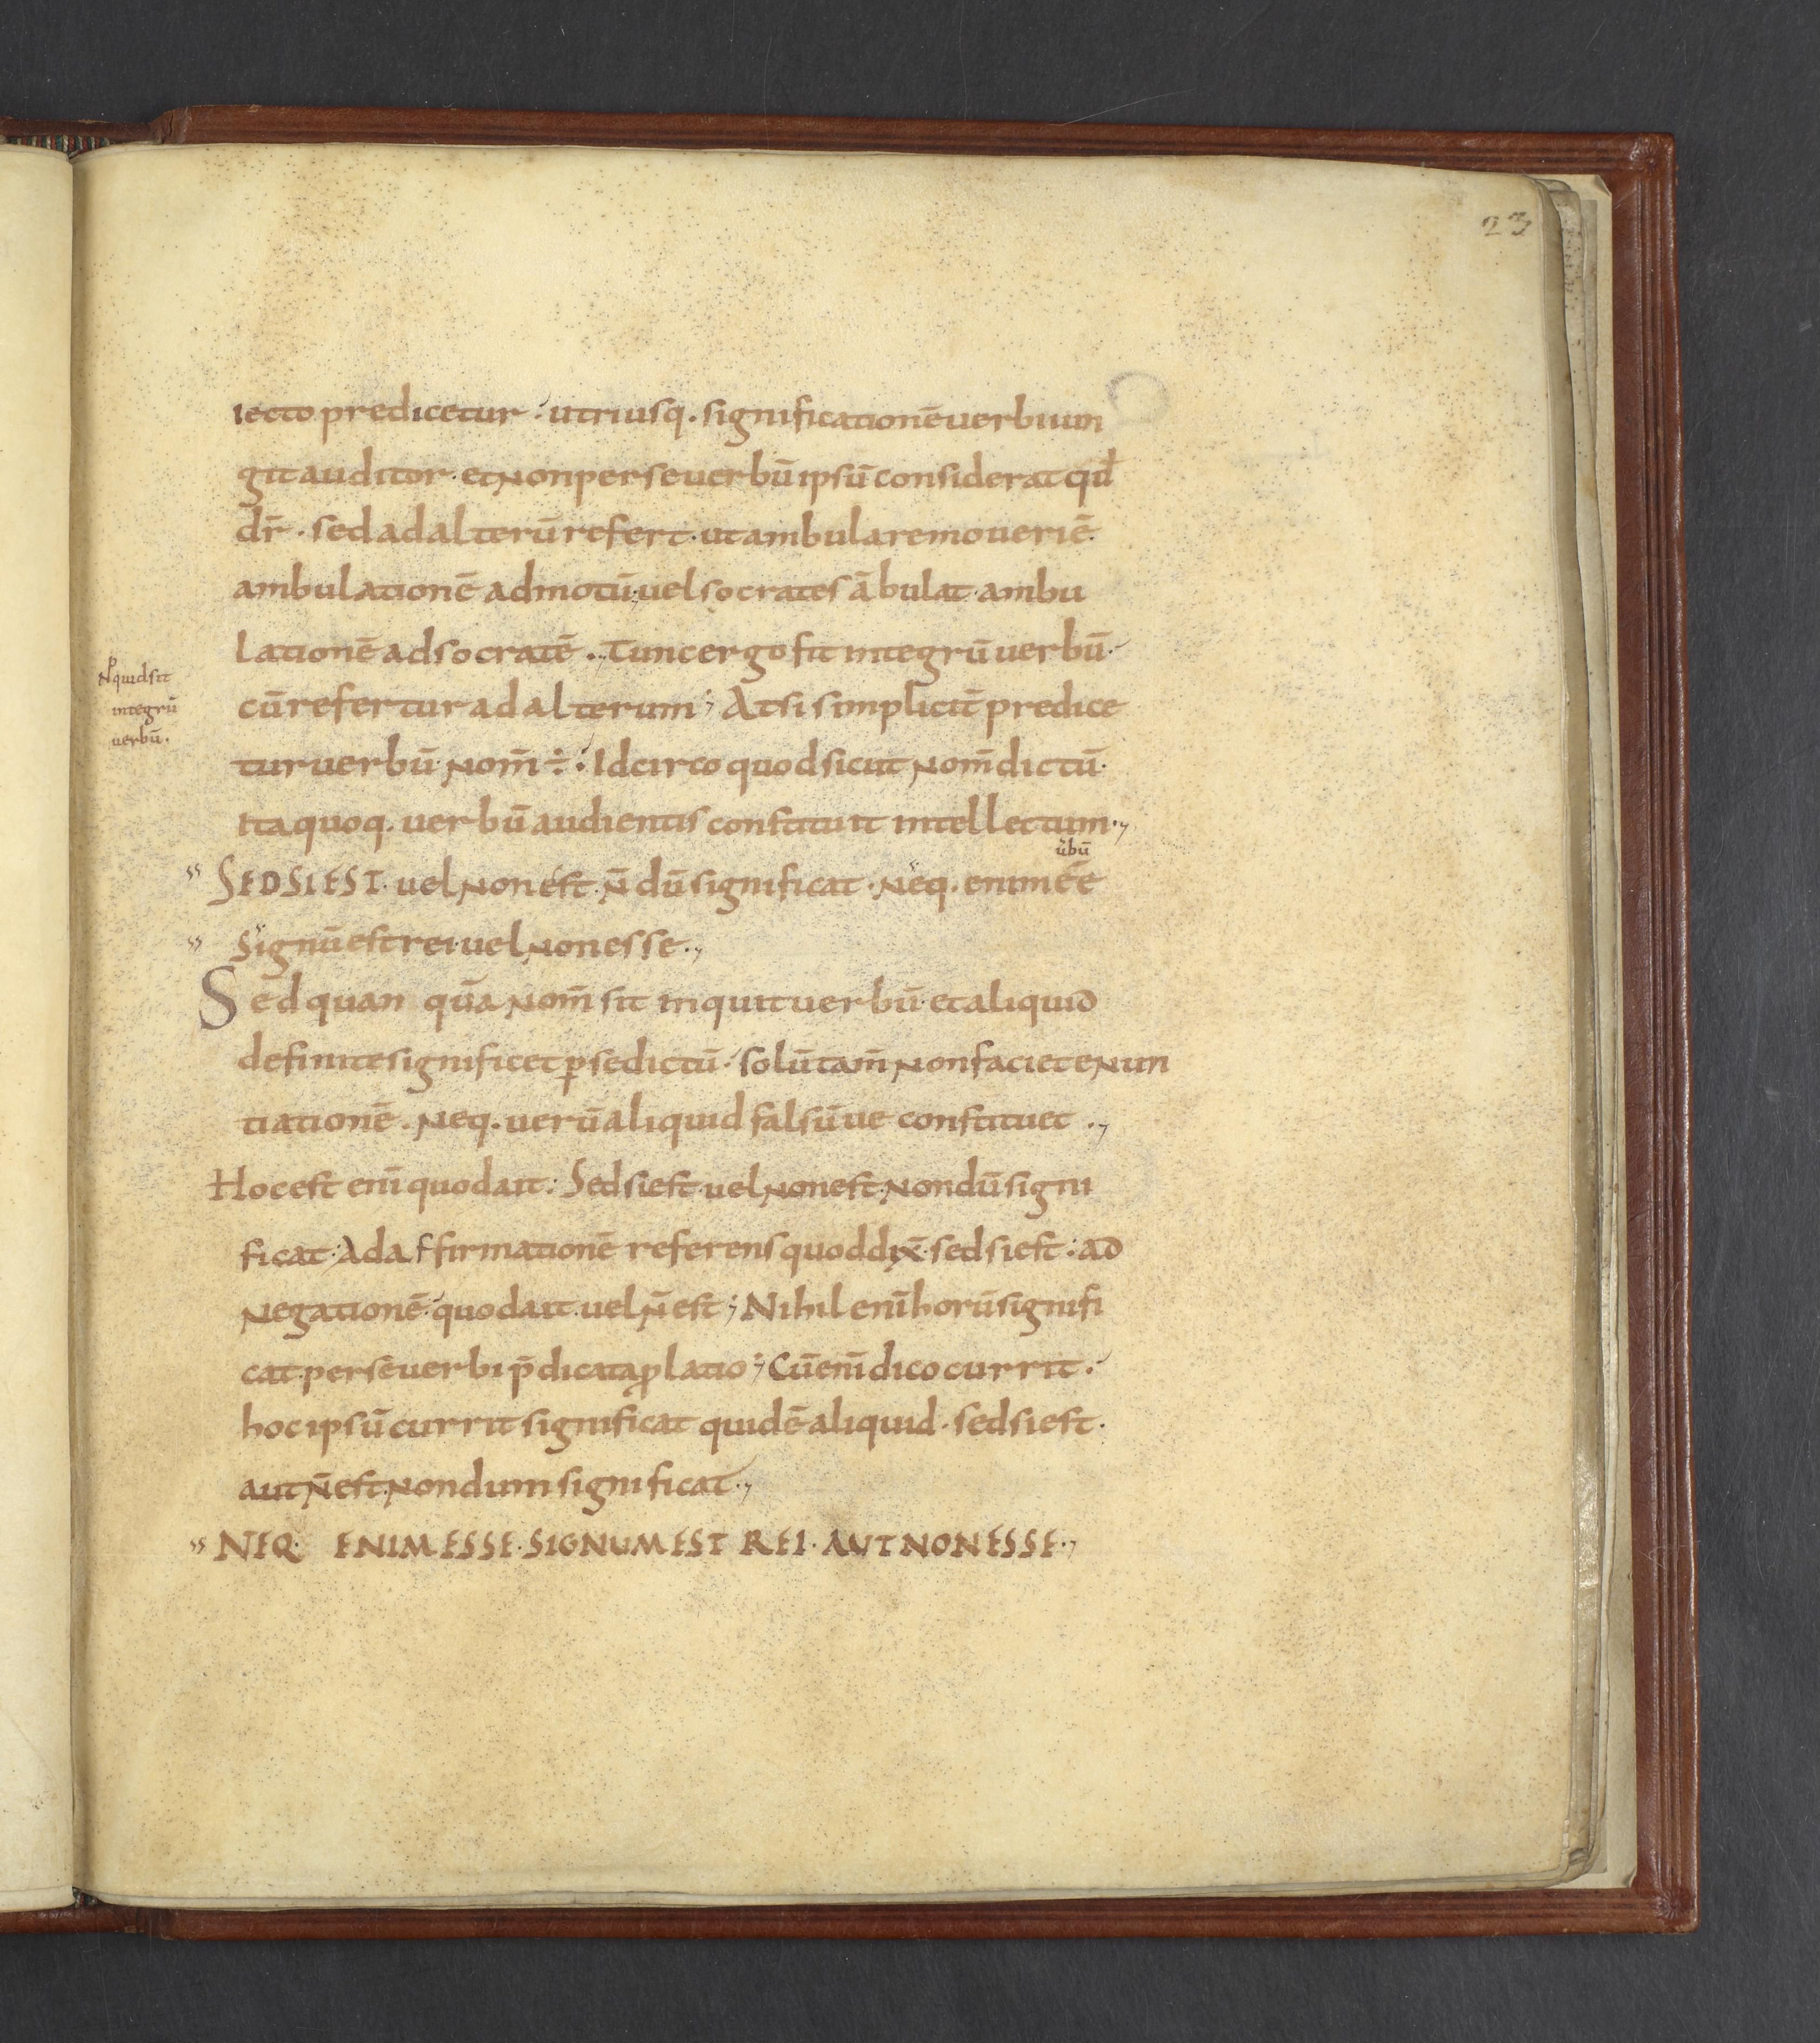 23
iecto predicetur · utriusq. significationē uerbi iun
git auditor · et non per se uerbū ipsū considerat qđ
dr̄ · sed ad alterū refert · ut ambulare moueri ē ·
ambulationē ad motū · uel socrates ābulat · ambu
lationē ad socratē ·, Tunc ergo fit integrū uerbū ·
Nquid sit
integrū
uerbū .
cū refertur ad alterum ; At si simplicit̄ predice
tur uerbū · nom̄ ÷ · Idcirco quod sicut nom̄ dictū ·
ita quoq. uerbū audientis constituit intellectum ·,
SED SI EST · uel non est · n̄dū significat · Neq. enim éé
ūbū
signū est rei · uel non esse ·,
Sed quan qūa nom̄ sit inquit uerbū · et aliquid
definite significet p se dictū · solū tam̄ non faciet enun
tiationē . Neq. uerū aliquid falsūue constituet ·,
Hoc est eni̅ quod ait : Sed si est · uel non est · nondū signi
ficat · Ad affirmationē referens quod dix̄ · sed si est : ad
negationē · quod ait · uel n̄ est ; Nihil eni̅ horū signifi
cat · per se uerbi p̄dicata platio ; Cū eni̅ dico currit ·
hoc ipsū currit significat quidē aliquid · sed si est ·
aut n̄ est · nondum significat ·,
NEQ· ENIM ESSE · SIGNUM EST REI · AUT NON ESSE ·,